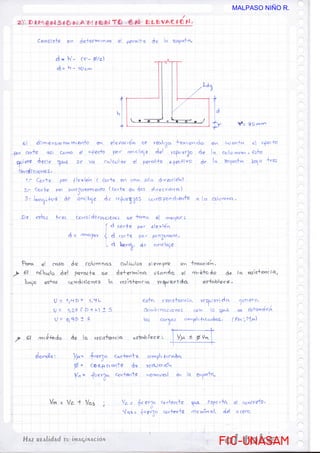 MALPASO NIÑO R.
2). DIMENSIONAMIENTO EN ELEVACIÓN.
Consiste en determinar el peralte de la zapata.
d = h - (r - Ø/2)
d = h - 10cm
h
d
r
r = 7.5 mm
El dimensionamiento en elevación se realiza teniendo en cuenta el efecto
por corte así como el efecto por anclaje del refuerzo de la columna, esto
quiere decir que se va calcular el peralte efectivo de la zapata bajo tres
condiciones:
1.- Corte por flexión (corte en una sola dirección)
2.- Corte por punzonamiento (corte en dos direcciones)
3.- Longitud de anclaje de refuerzos correspondiente a la columna.
De estas tres consideraciones se toma el mayor:
d = mayor
d corte por flexión
d corte por punzonam.
d long. de anclaje
Para el caso de columnas cálculos siempre en tracción.
El cálculo del peralte se determina usando el método de la resistencia,
bajo estas condiciones la resistencia requerida establece.
El método de la resistencia establece: Vu ≤ Ø Vn
donde: Vu = fuerza cortante amplificada
Ø = coeficiente de reducción
Vn = fuerza cortante nominal en la zapata.
Vn = Vc + Vs ; Vc = fuerza cortante que soporta el concreto.
Vs = fuerza cortante nominal del acero.
Haz realidad tu imaginación
FIC-UNASAM